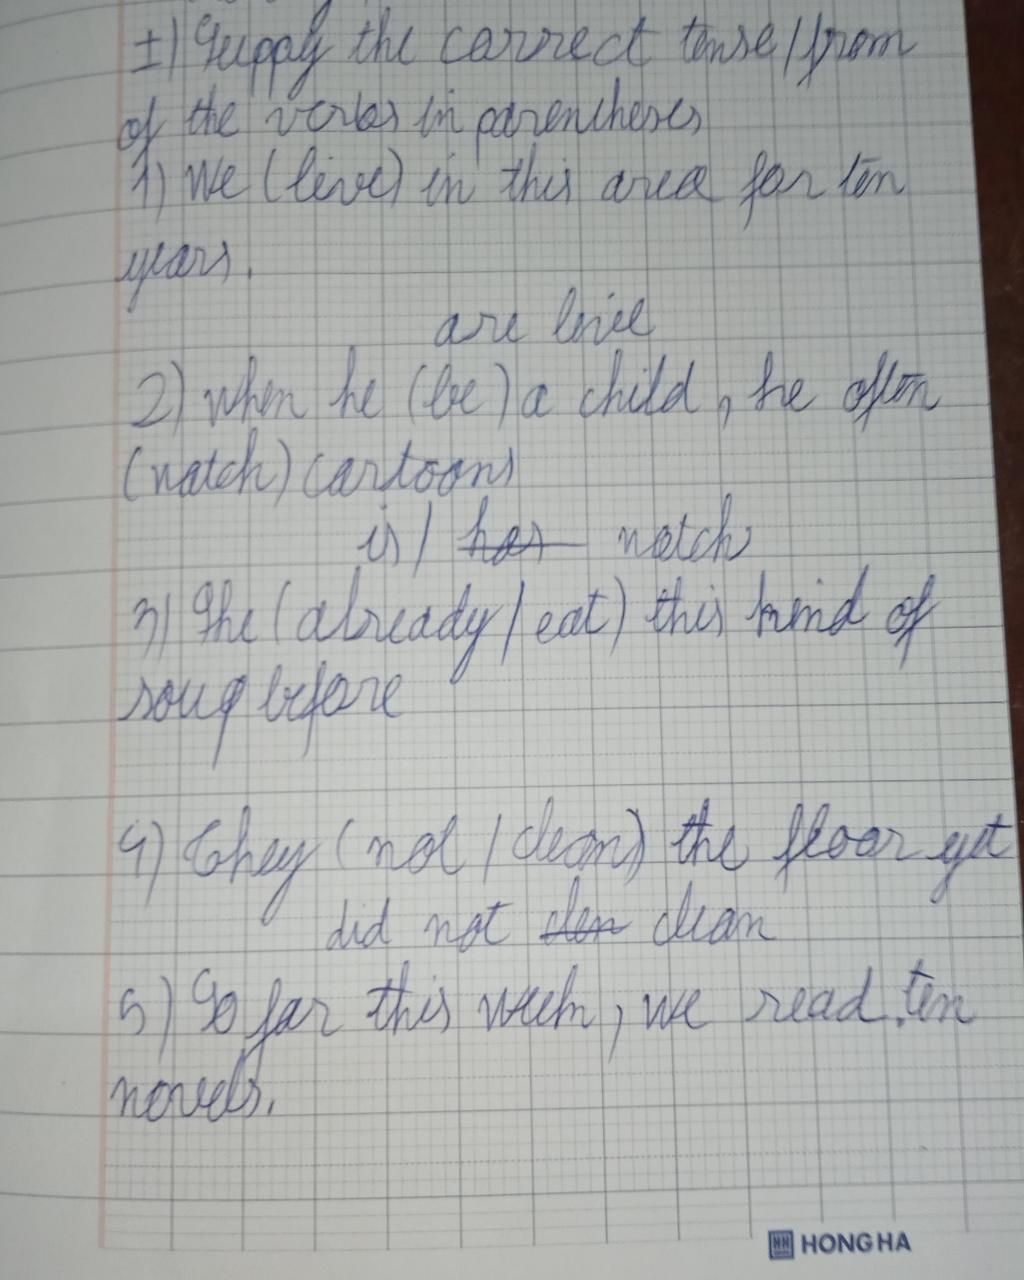 I) Supply the correct tense/from
of the verbs in parentheses
1) We (live) in this area for ten
years.
are live
2) when he (be) a child, he often
(watch) cartoons
is/ has watch
3) She (already/eat) this kind of
soup before
4) They (not/clean) the floor yet
did not clen clean
5) So far this week, we read ten
novels.
HONG HA